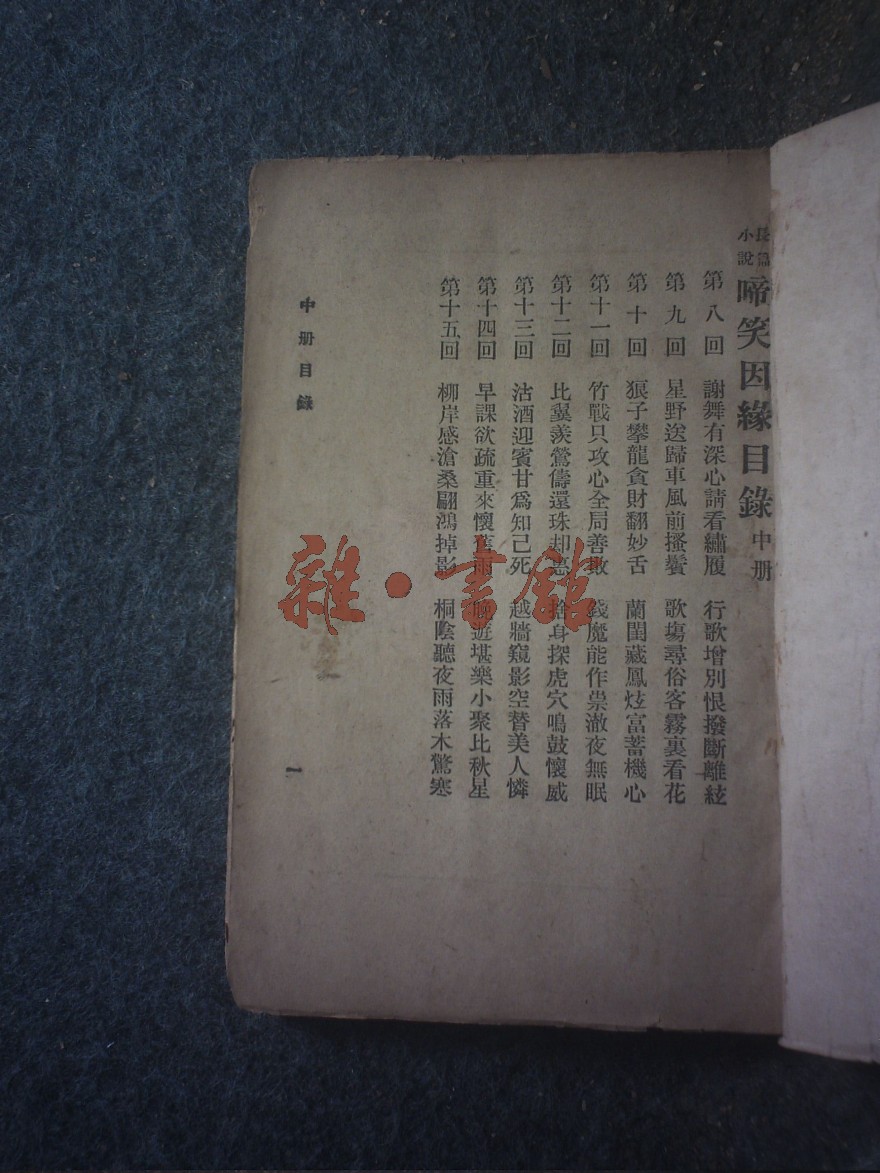 長篇小說
啼笑因緣目錄 中册
第八回 謝舞有深心請看繡履 行歌增別恨撥斷離絃
第九回 星野送歸車風前搔鬢 歌塲尋俗客霧裏看花
第十回 狼子攀龍貪財翻妙舌 蘭閨藏鳳炫富蓄機心
第十一回 竹戰只攻心全局善敗 錢魔能作祟澈夜無眠
第十二回 比翼羨鶯儔還珠却惠 捨身探虎穴鳴鼓懷威
第十三回 沽酒迎賓甘爲知己死 越牆窺影空替美人憐
第十四回 早課欲疏重來懷舊雨 遊堪樂小聚比秋星
第十五回 柳岸感滄桑翩鴻掉影 桐陰聽夜雨落木驚寒
中册目錄
一
雜·書館